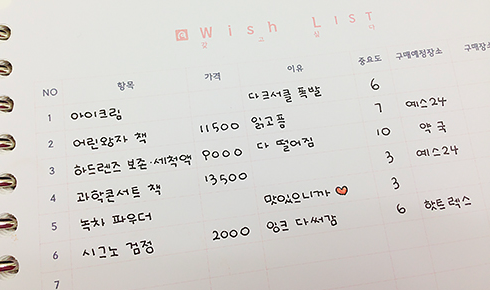 Wish List
NO 항목 가격 이유 중요도 구매예정장소 구매장
1 아이크림 다크서클 폭발 6
2 어린왕자 책 11500 읽고픔 7 예스24
3 하드렌즈 보존·세척액 9000 다 떨어짐 10 약국
4 과학콘서트 책 13500 3 예스24
5 녹차 파우더 맛있으니까 ♥ 3
6 시그노 검정 2000 잉크 다써감 6 핫트렉스
7